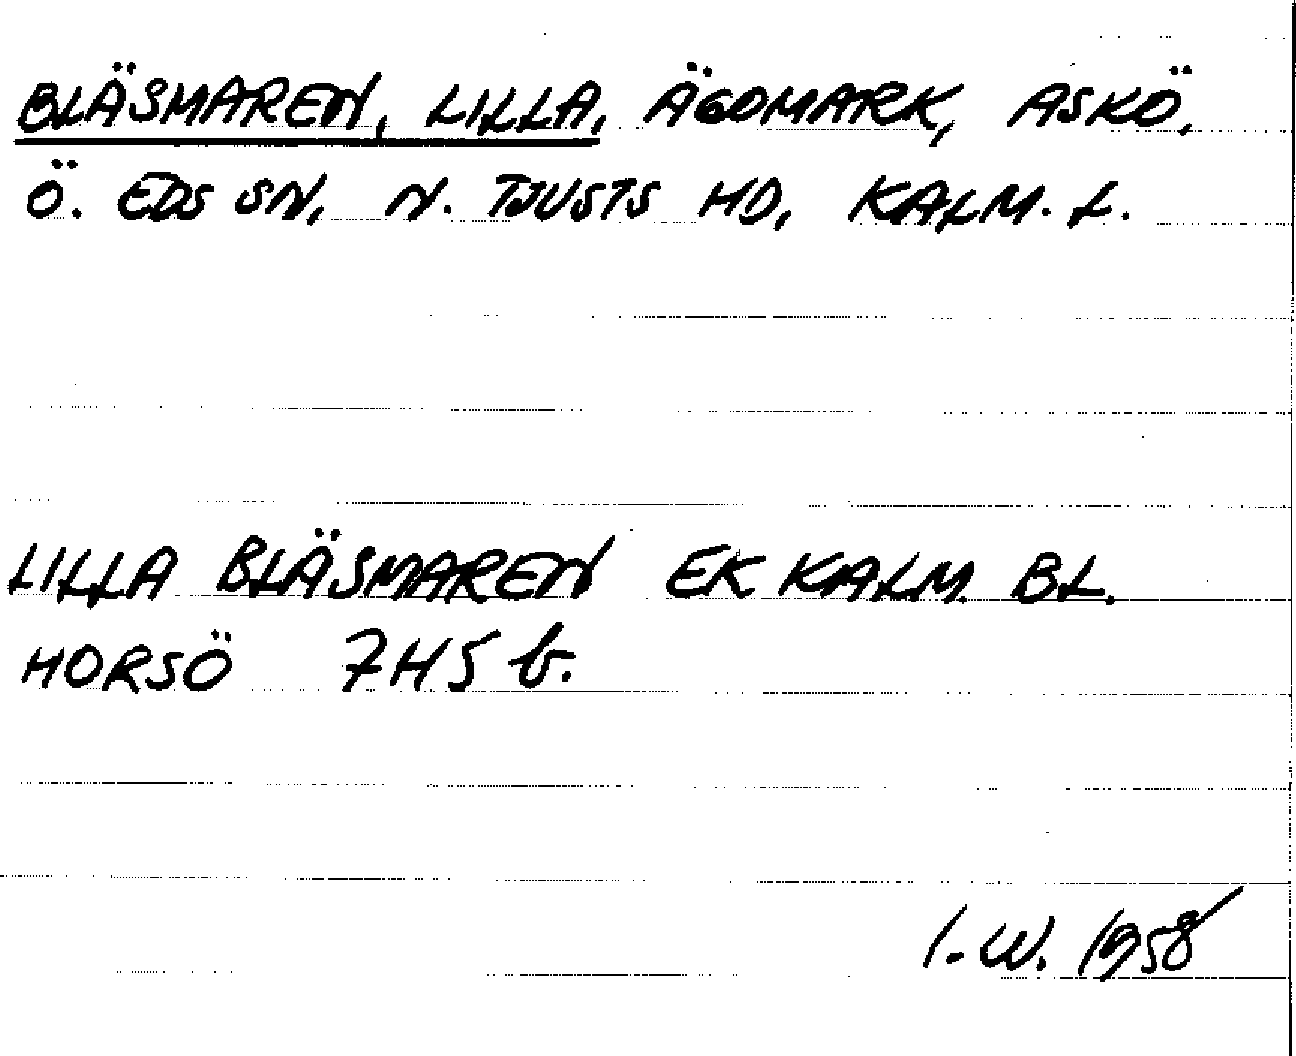 BLÄSMAREN, LILLA, ÄGOMARK, ASKÖ,
Ö. EDS SN, N. TJUSTS HD, KALM. L.
LILLA BLÄSMAREN EK KALM. BL.
HORSÖ 7H5 b.
I.W. 1958